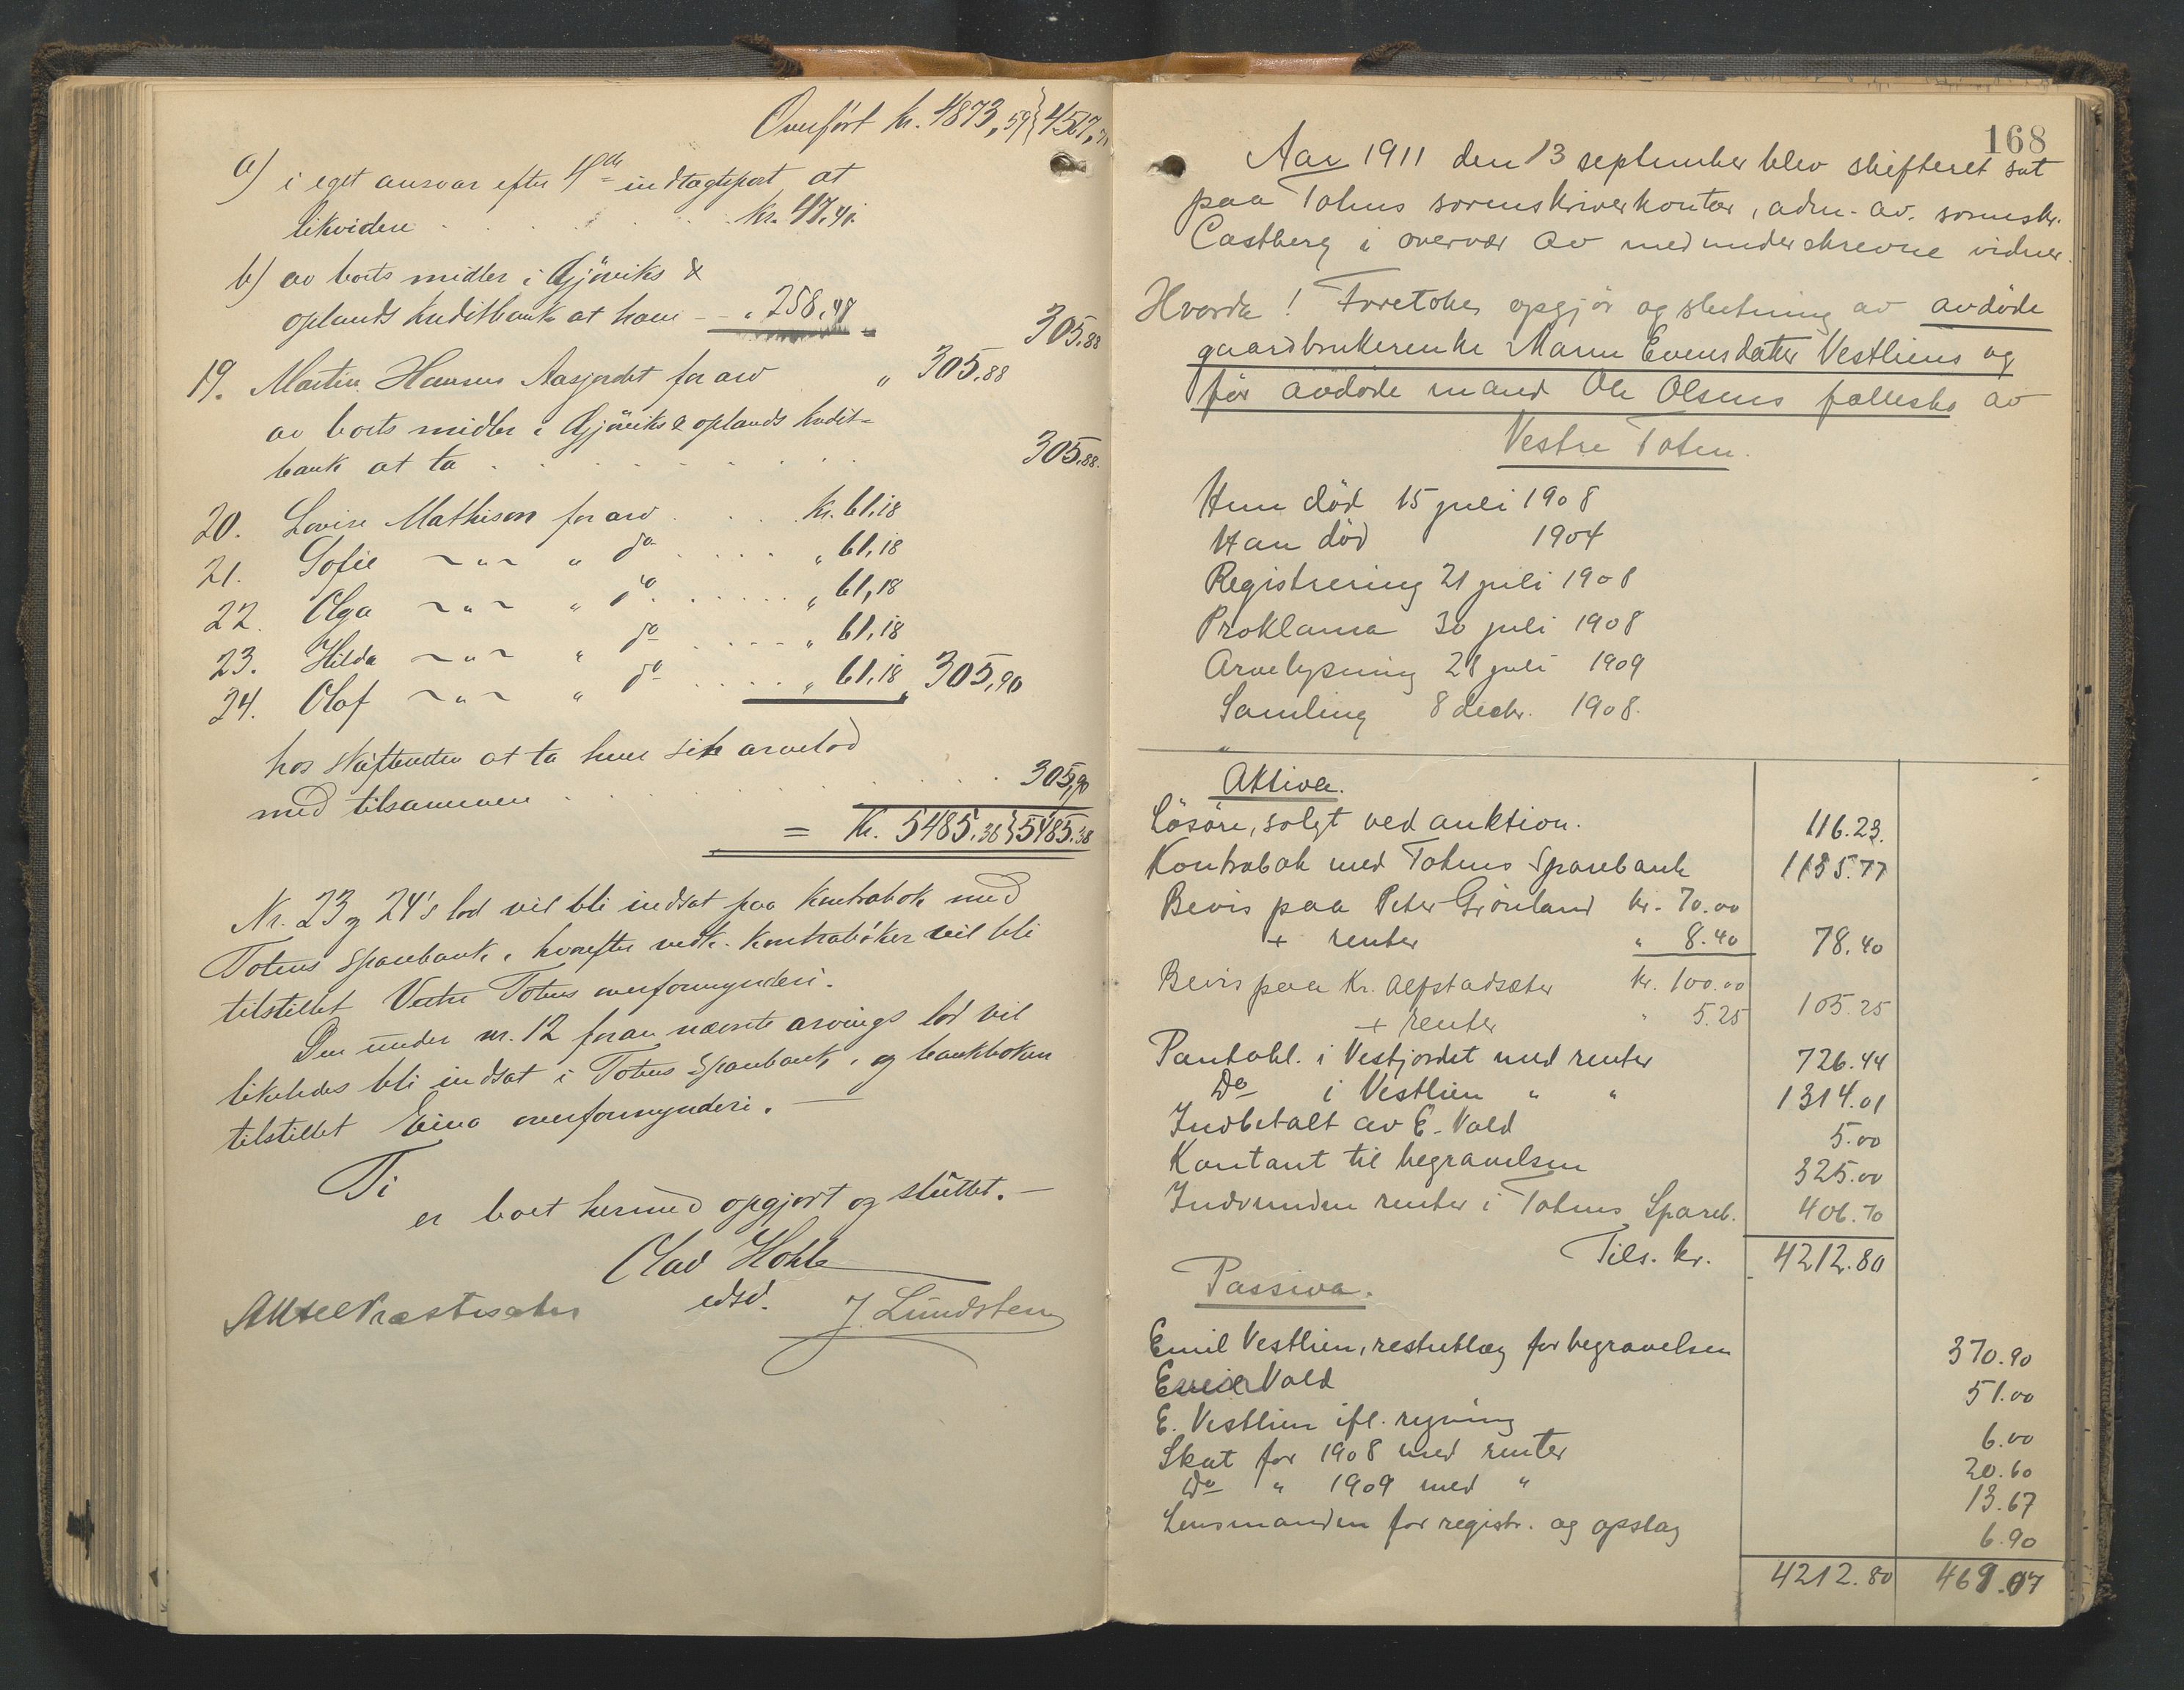 Overført kr. 4873,59 } 4567,
a) i eget ansvar efter 4de indtægtspost at
likvidere . . . . . kr. 47,40
b) av boets midler i Gjøviks &
oplands kreditbank at have - „ 258,48 305,88
19. Martin Hansens Aasjordet for arv „ 305,88
av boets midler i Gjøviks & oplands kredit-
bank at ta . . . . . . . . 305,88.
20. Lovise Mathisen for arv . . . . kr. 61,18
21. Sofie ~ „ ~ „ do . . . . „ 61,18
22. Olga ~ „ ~ „ do . . . . . „ 61,18
23. Hilda ~ „ ~ „ do . . . . „ 61,18
24. Olaf ~ „ ~ „ do . . . . „ 61,18 „ 305,90
hos skifteretten at ta hver sit arvelod
med tilsammen . . . . . . . . 305,90
= Kr. 5485,38 } 5485,38
Nr. 23 og 24's lod vil bli indsat paa kontrabok med
Totens sparebank, hvorefter vedk. kontrabøker vil bli
tilstillet Vestre Totens overformynderi.
Den under nr. 12 foran nævnte arvings lod vil
likeledes bli indsat i Totens Sparebank, og bankboken
tilstillet Eina overformynderi. —
Ti
er boet hermed opgjort og sluttet. —
Olav Hohle
edsv.
Aksel Præstesæter J. Lundsten
168
Aar 1911 den 13 september blev skifteret sat
paa Totens sorenskriverkontor, adm. av. sorenskr.
Castberg i overvær av medunderskrevne vidner.
Hvorda! Foretokes opgjør og slutning av avdøde
gaardbrukerenke Maren Evensdatter Vestliens og
før avdøde mand Ole Olsens fællesbo av
Vestre Toten.
Hun død 15 juli 1908
Han død 1904
Registrering 21 juli 1908
Proklama 30 juli 1908
Arvelysning 28 juli 1909
Samling 8 decbr. 1908.
Aktiva.
Løsøre, solgt ved auktion. 116.23.
Kontrabok med Totens Sparebank 1135.77
Bevis paa Peter Grønland kr. 70.00
+ renter „ 8.40 78.40
Bevis paa Kr. Alfstadsæter kr. 100.00
+ renter „ 5.25 105.25
Pantobl. i Vestjordet med renter 726.44
Do i Vestlien „ „ 1314.01
Indbetalt av E. Vold 5.00
Kontant til begravelsen 325.00
Indvunden renter i Totens Spareb. 406.70
Tils. kr. 4212.80
Passiva.
Emil Vestlien, restutlæg for begravelsen 370.90
Vold 51.00
E. Vestlien ifl. regning 6.00
Skat for 1908 med renter 20.60
Do „ 1909 med „ 13.67
Lensmanden for registr. og opslag 6.90
4212.80 469.07